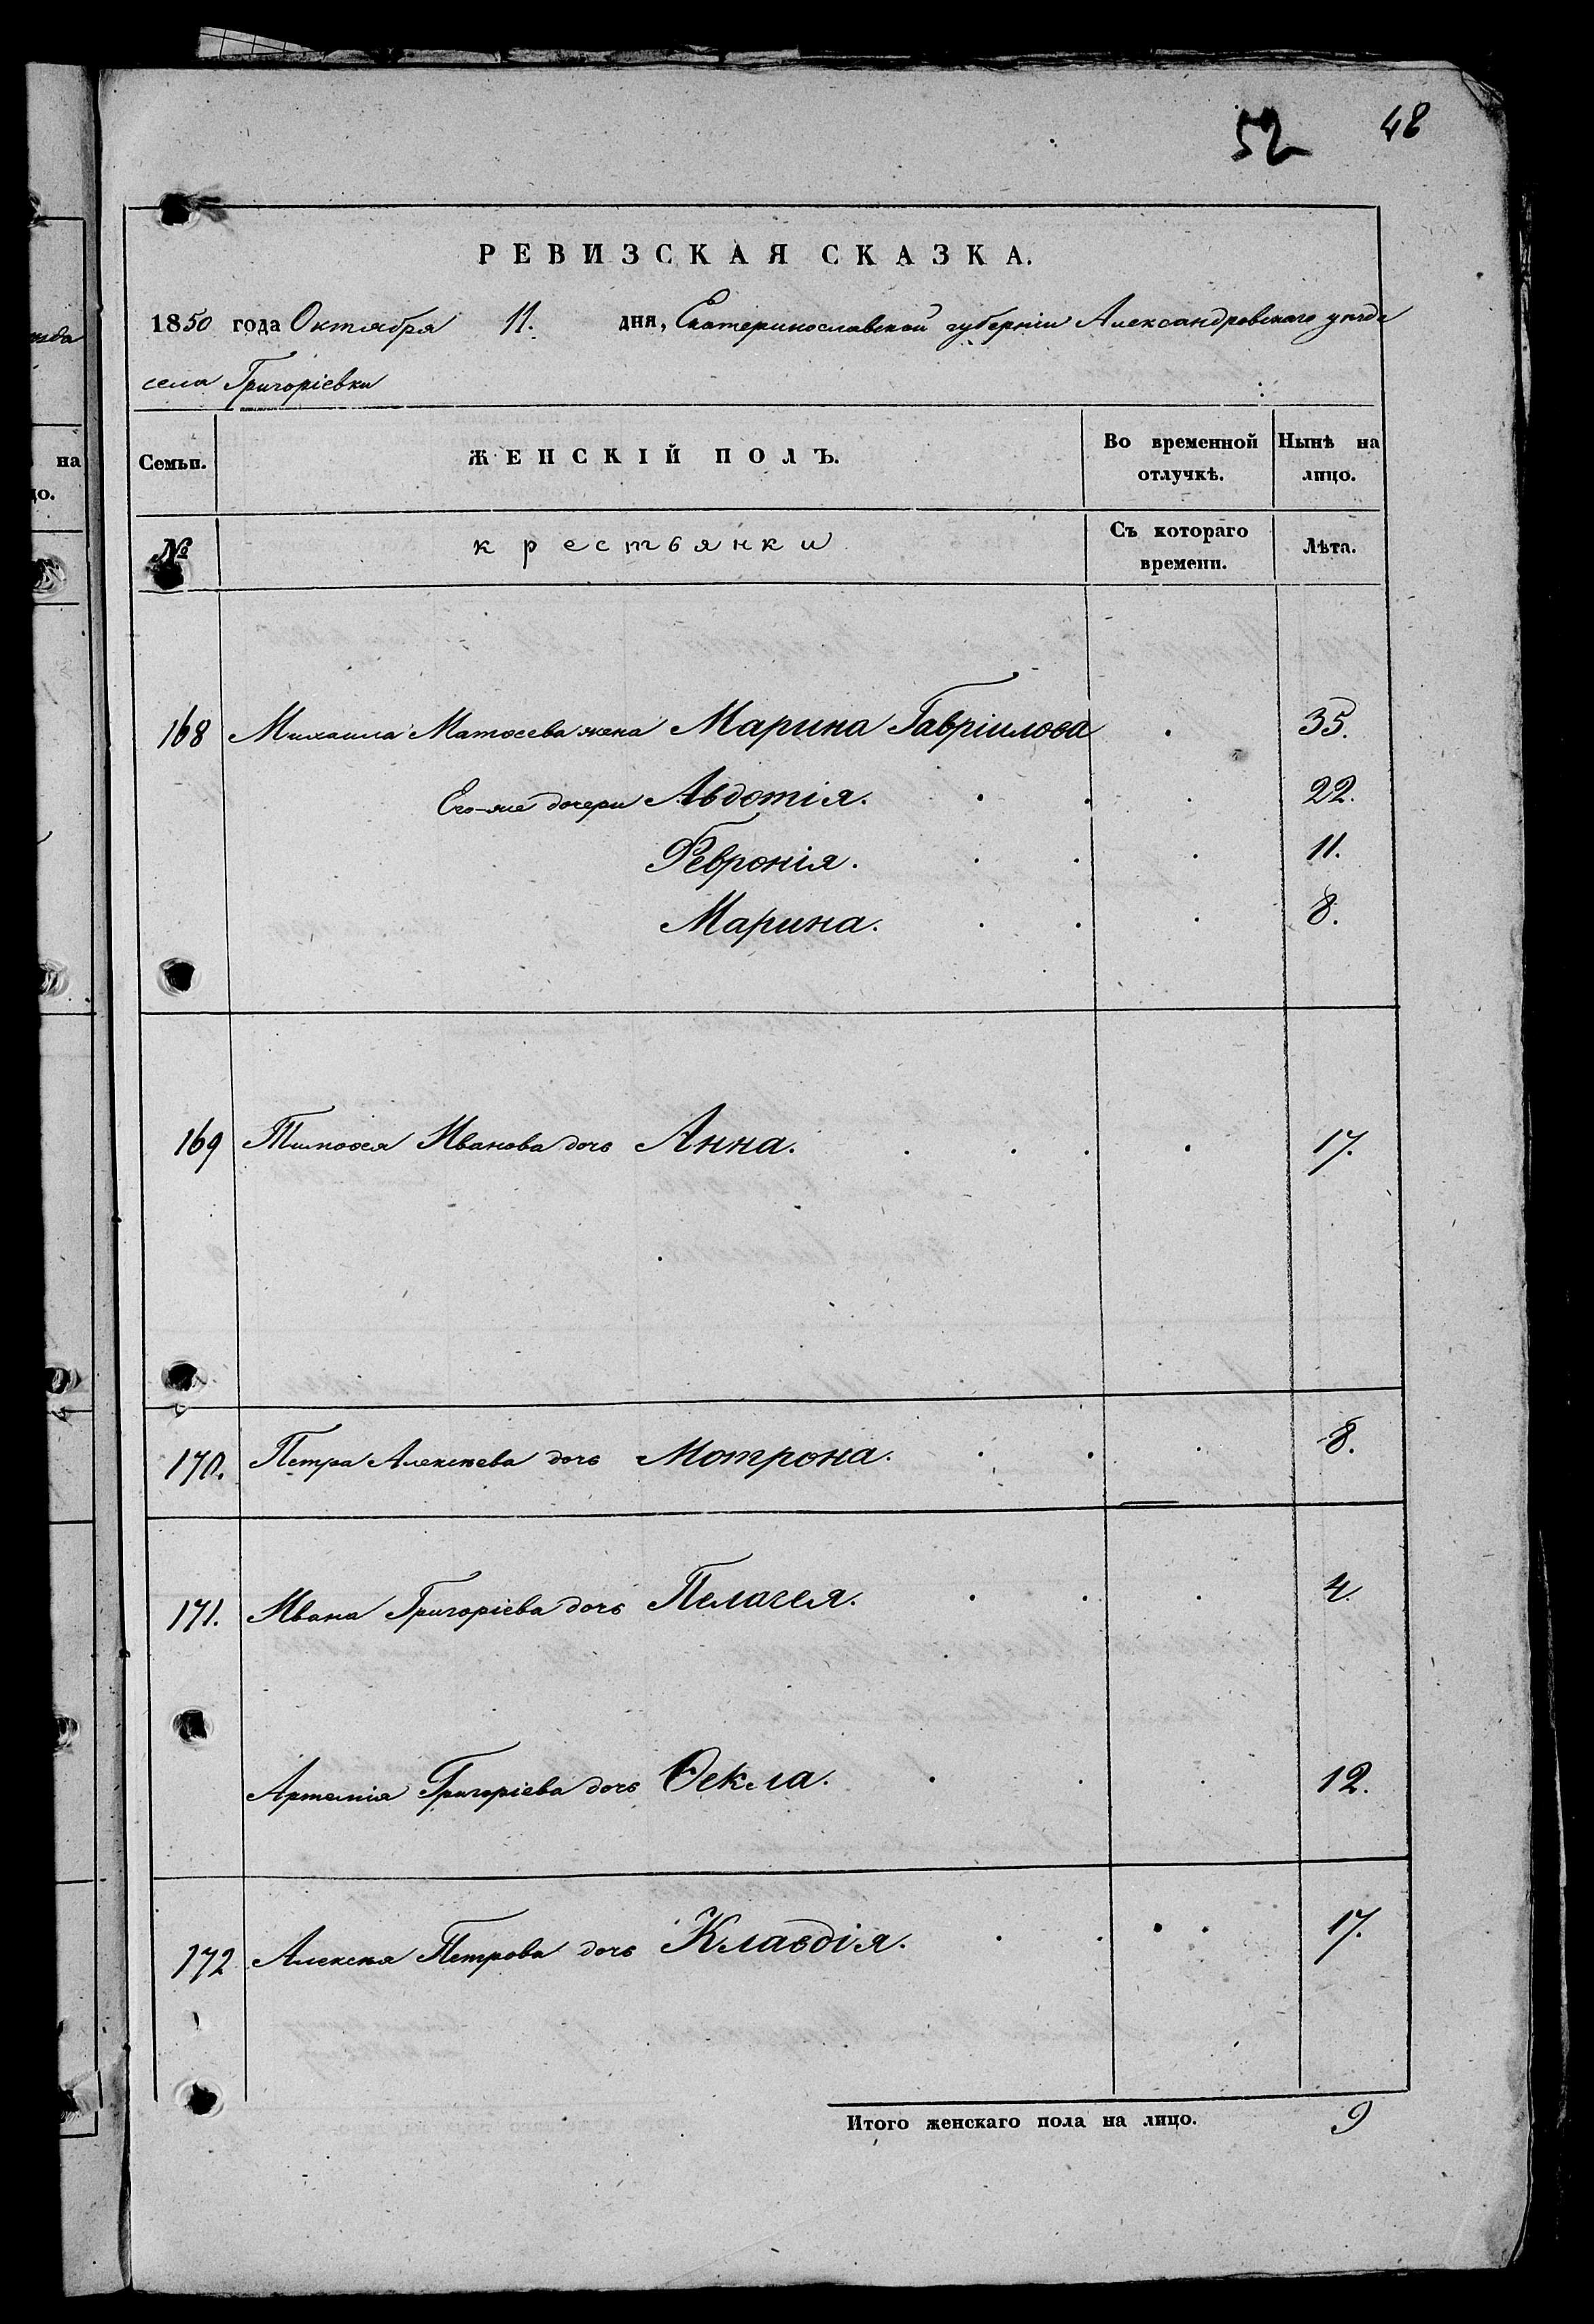 52 48
РЕВИЗСКАЯ СКАЗКА.
1850 года Октября 11. дня, Екатеринославской губерніи Александровскаго уѣзда
села Григоріевки
Семьи. ЖЕНСКІЙ ПОЛЪ. Во временной отлучкѣ. Нынѣ на лицо.
№ крестьянки Съ котораго времени. Лѣта.
168 Михаила Матөеева жена Марина Гавріилова 35.
Его-же дочери Авдотія. 22.
Февронія. 11.
Марина. 8.
169 Тимоөея Иванова дочь Анна. 17.
170. Петра Алексѣева дочь Мотрона. 8.
171. Ивана Григоріева дочь Пелагея. 4.
Артемія Григоріева дочь Өекла. 12.
172 Алексѣя Петрова дочь Клавдія. 17.
Итого женскаго пола на лицо. 9